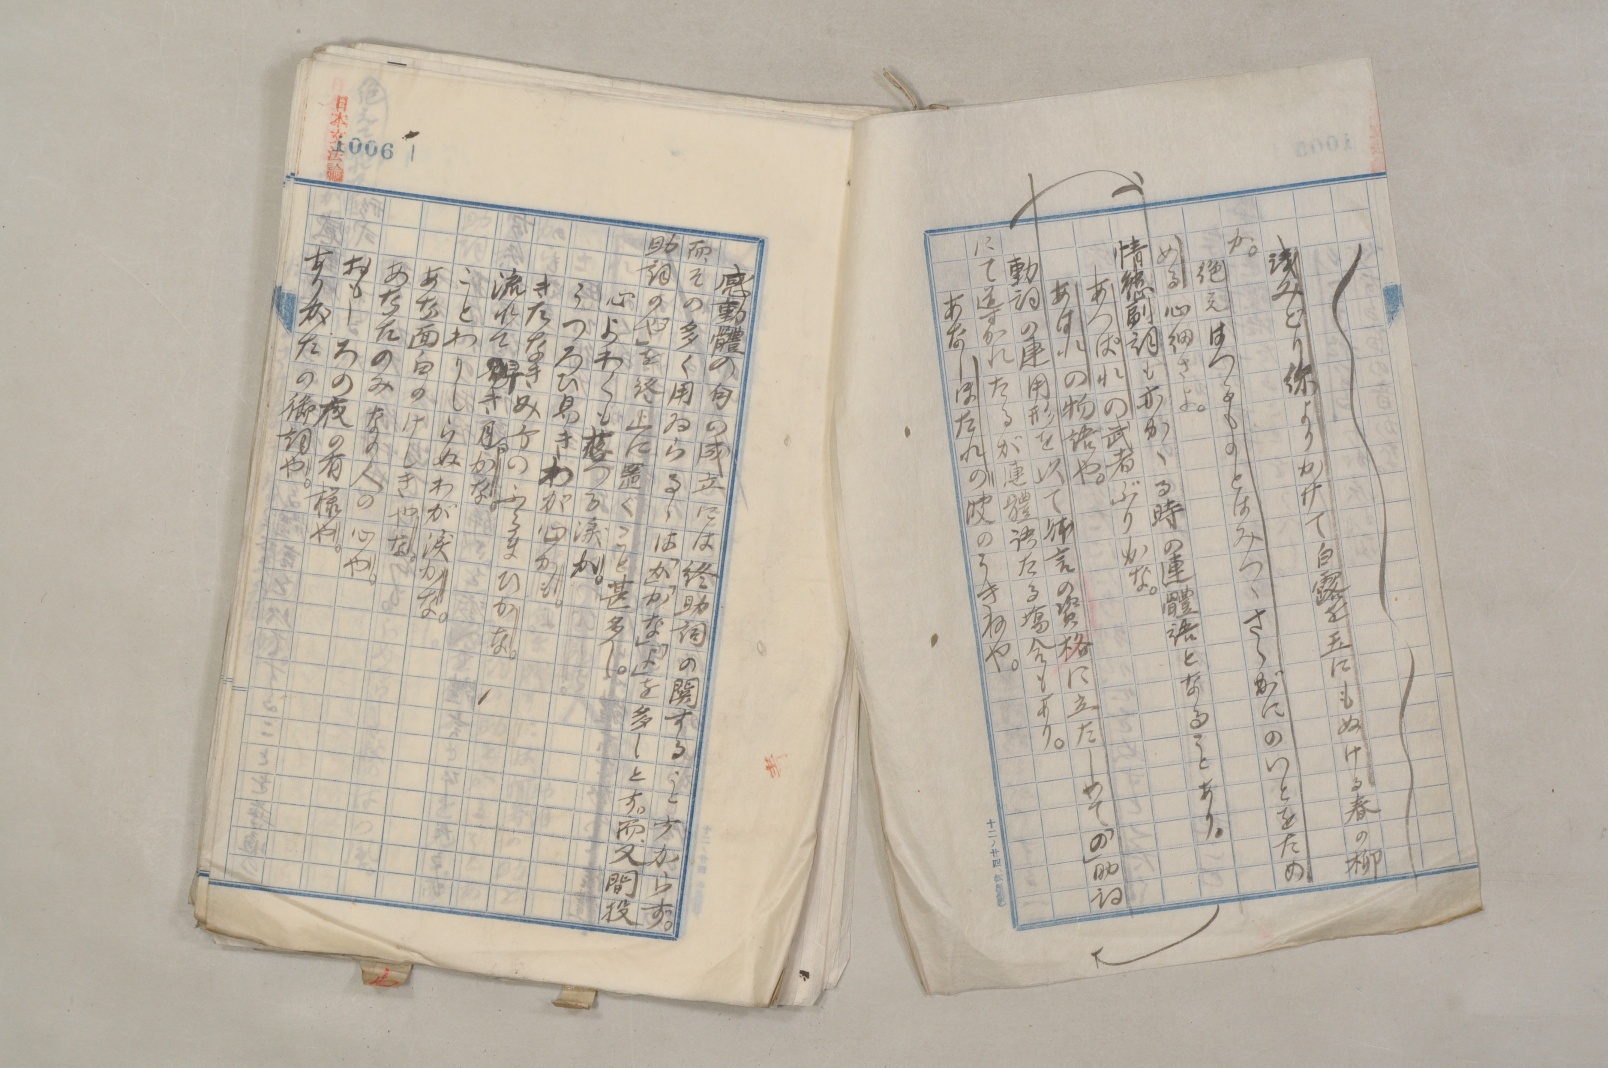 淺みどり絲よりかけて白露を玉にもぬける春の柳
か。
絶えはつるものとはみつゝさゝがにのいとをため
める心細さよ。
情態副詞も亦かゝる時の連體語となることあり。
あつぱれの武者ぶりかな。
あはれの物語や。
動詞の連用形を以て體言の資格に立たしめて「の」助詞
にて導かれたるが連體語たる場合もあり。
あなしほたれの
日本文法論
1006
感動體の句の成立には終助詞の關すること少からず。
而その多く用ゐらるゝは「か」「かな」「よ」を多しとす。而又間投
助詞の「や」を終止に置くこと甚多し。
心よわくも落つる涙か。
うつろひ易きわが心かも。
きたなきみ方のふるまひかな。
流れて早き月日かな。
ことわりしらぬわが涙かな。
あな面白のけしきやな。
あなたのみなの人の心や。
おもしろの夜の有樣や。
ありがたの御詞や。